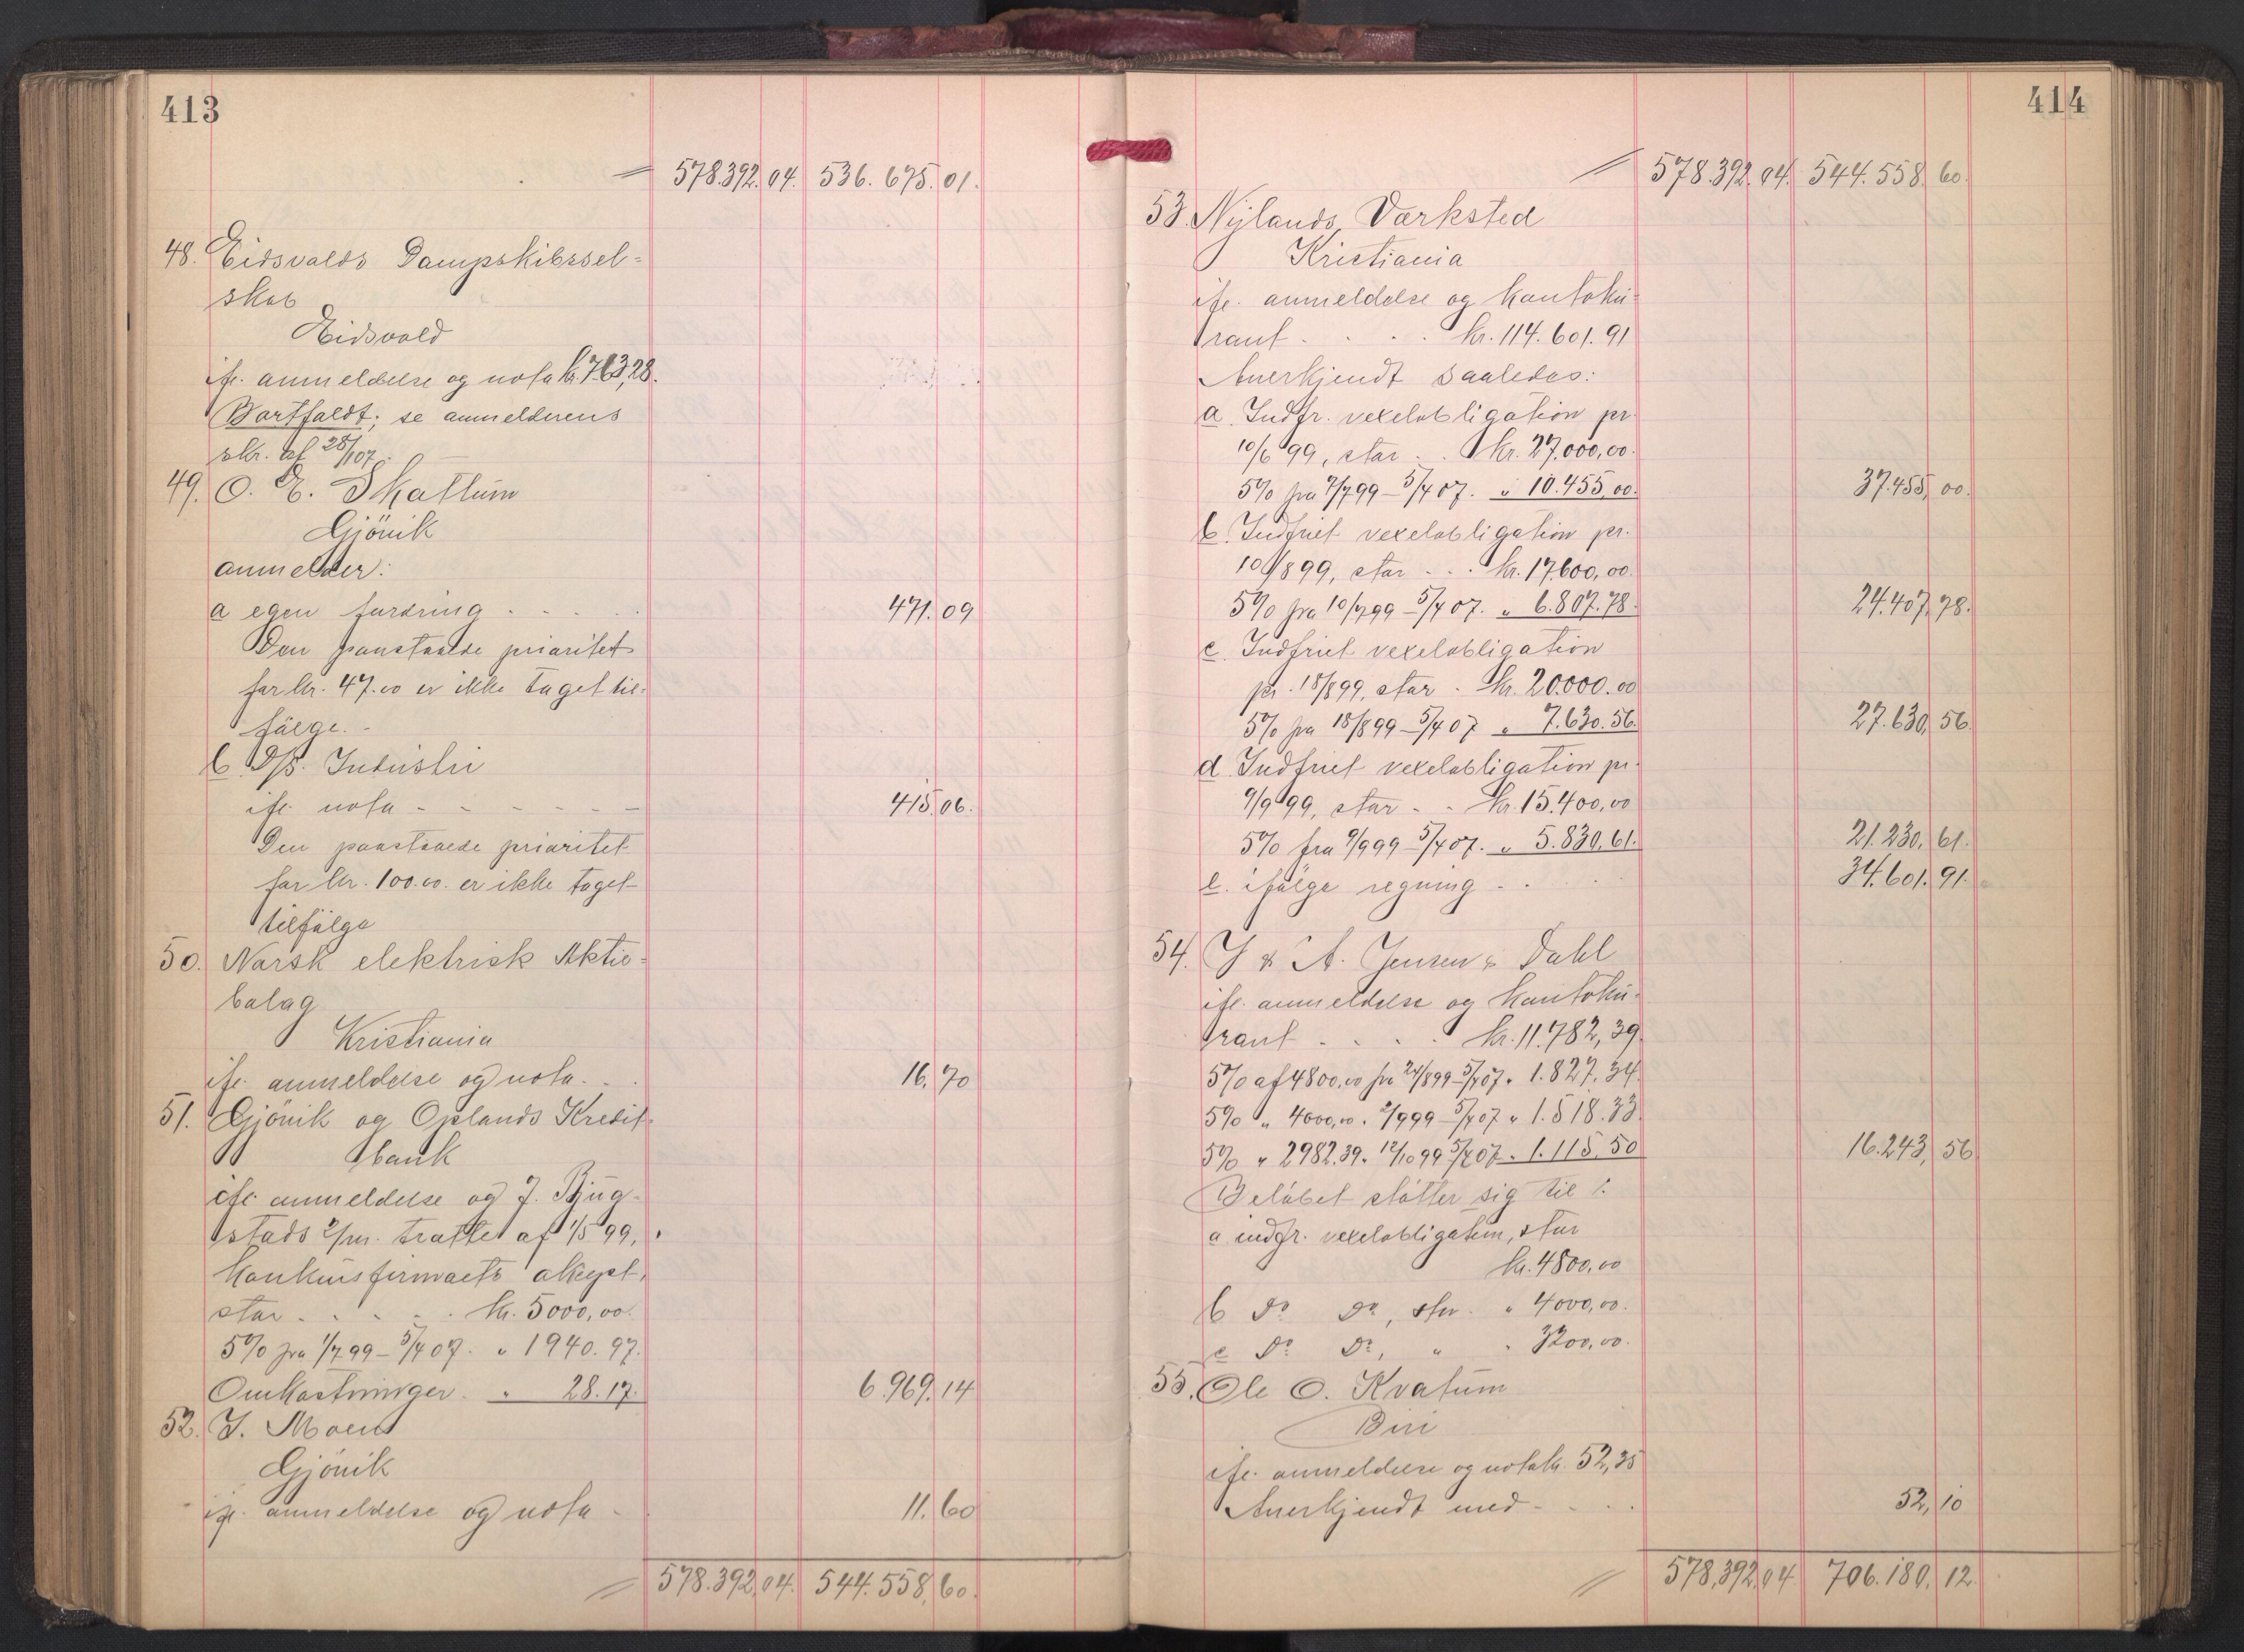 413
578.392.04. 536.675.01.
48. Eidsvolds Dampskibssel=
skab
Eidsvold
ifl. anmeldelse og nota kr. 763,28.
Bortfaldt; se anmelderens
skr. af 28/1 07.
49. O. E. Skattum
Gjövik
anmelder:
a egen fordring . . . . . 471.09
Den paastaaede prioritet
for kr. 47.00 er ikke taget til-
fölge. -
b D/S. Industri
ifl. nota - - - - - - 415.06.
Den paastaaede prioritet
for kr. 100.00. er ikke taget
tilfölge
50. Norsk elektrisk Aktie=
bolag
Kristiania
ifl. anmeldelse og nota. . . 16,70
51. Gjövik og Oplands Kredit-
bank
ifl. anmeldelse og J. Bjug-
stads 2/m. tratte af 1/5 99,
konkursfirmaets aksept,
stor . . . . . kr. 5000,00.
5% fra 1/7 99 - 5/4 07. " 1940.97.
Omkostninger. " 28.17. 6.969.14
52. J. Moen
Gjövik
ifl. anmeldelse og nota - 11.60
578.392,04. 544.558,60.
414
578.392.04. 544.558.60.
53. Nylands Værksted
Kristiania
ifl. anmeldelse og kontoku-
rant . . . . kr. 114.601.91
Anerkjendt saaledes:
a. Indfr. vexelobligation pr.
10/6 99, stor . . kr. 27.000,00.
5% fra 7/7 99 - 5/4 07. " 10.455,00. 37.455,00.
b. Indfriet vexelobligation pr.
10/8 99, stor . . . kr. 17.600,00.
5% fra 10/7 99 - 5/4 07. " 6.807.78. 24.407,78.
c. Indfriet vexelobligation
pr. 18/8 99, stor . kr. 20.000.00
5% fra 18/8 99 - 5/4 07 " 7.630.56. 27.630,56.
d Indfriet vexelobligation pr.
9/9 99, stor - - kr. 15.400,00
5% fra 9/9 99 - 5/4 07. " 5.830,61. 21.230,61.
e. ifölge regning . . . . 34.601.91.
54. J & A. Jensen & Dahl
ifl. anmeldelse og kontoku-
rant . . . . kr. 11.782,39.
5% af 4800,00 fra 24/8 99 - 5/4 07 " 1.827.34.
5% " 4000,00. " 2/9 99 - 5/4 07 " 1.518.33.
5% " 2982.39. " 12/10 99 5/4 07. " 1.115.50 16.243,56
Belöbet stötter sig til:
a indfr. vexelobligation, stor
kr. 4800,00
b Do Do, stor. " 4000,00.
c Do Do, " " 3200,00.
55. Ole O. Kvatum
Biri
ifl. anmeldelse og nota kr. 52,35
Anerkjendt med - . . . 52,10
578,392.04. 706.180,12.